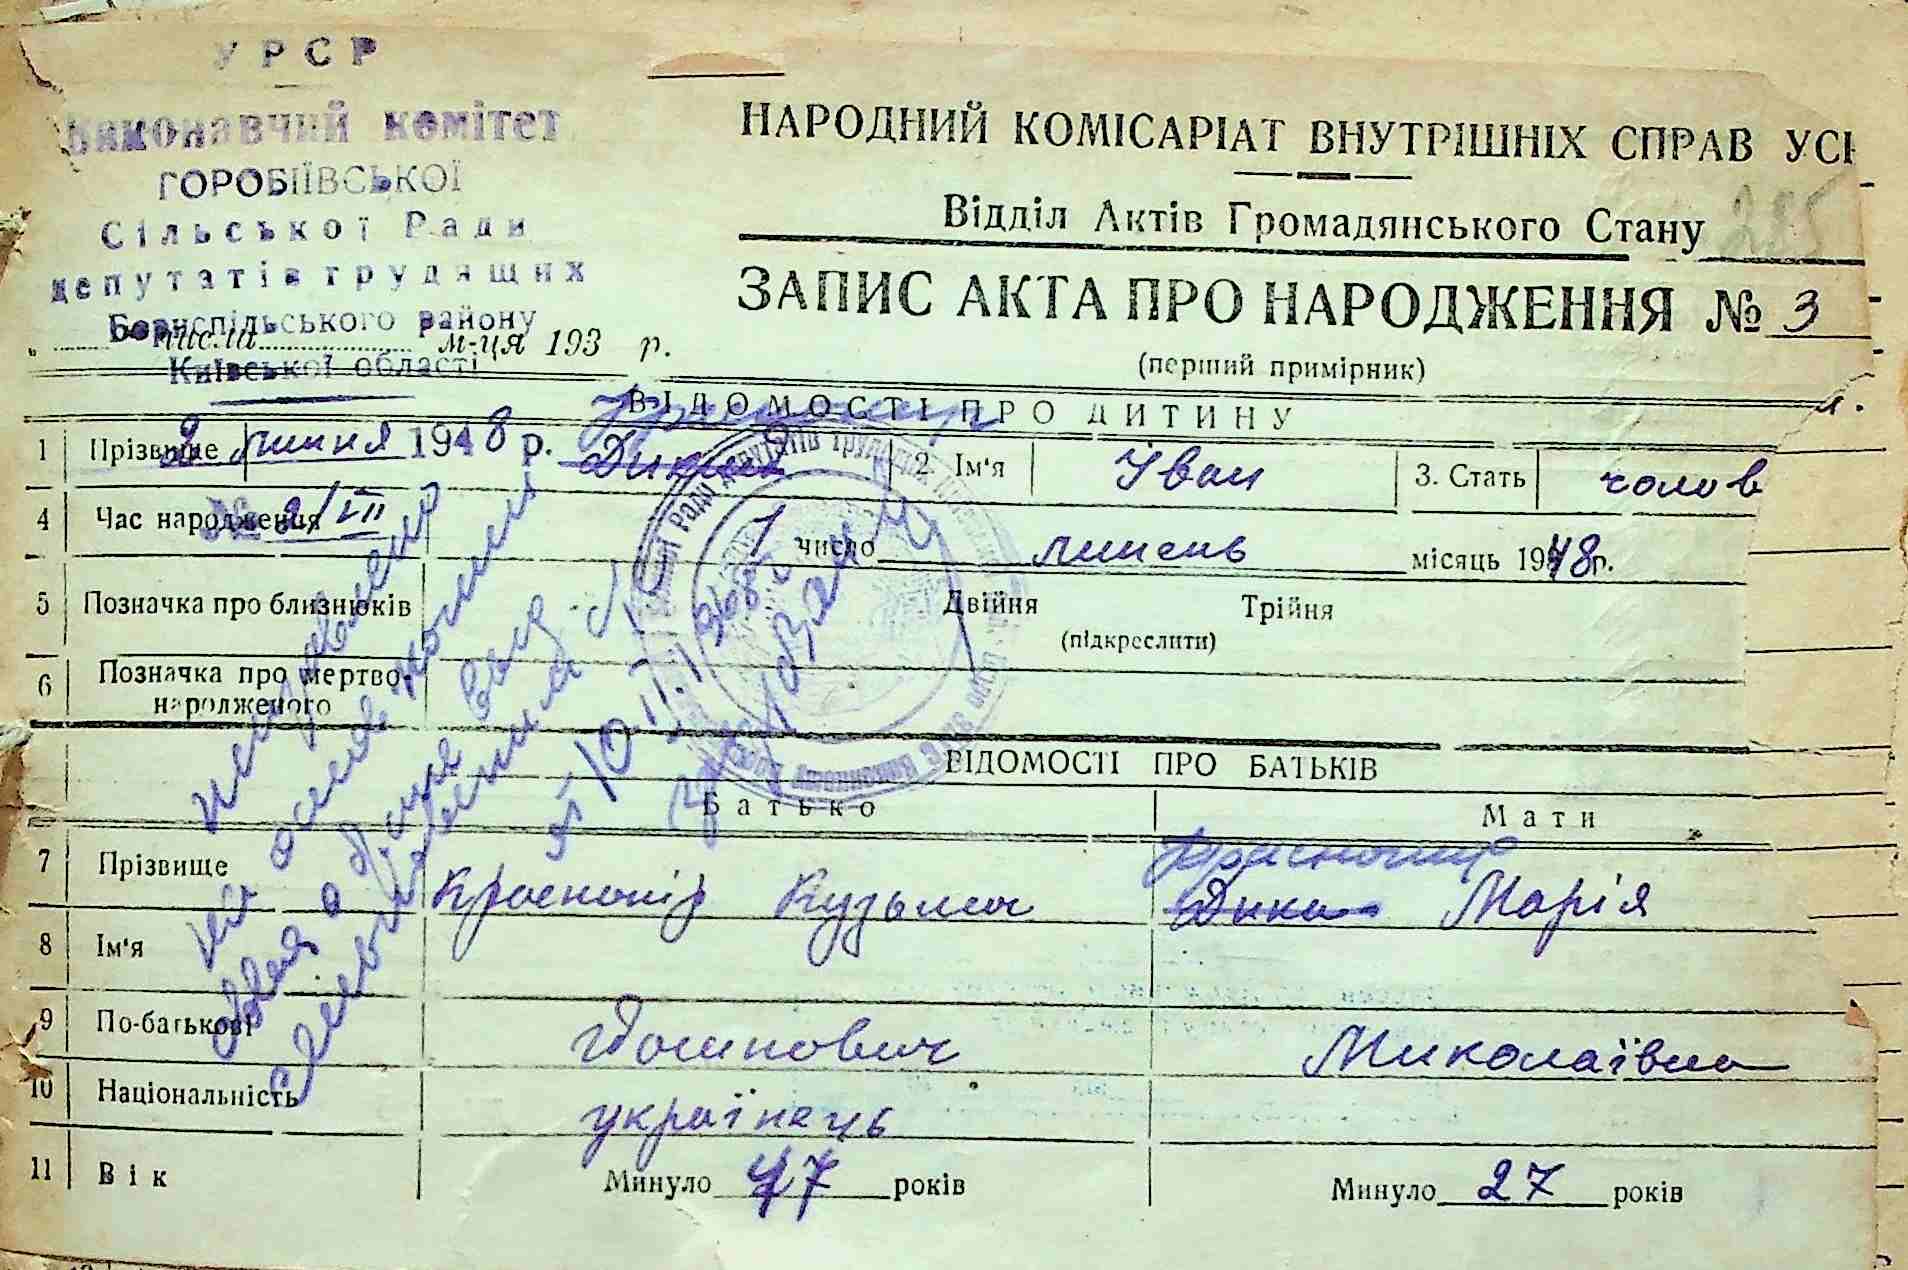 УРСР
Виконавчий комітет
ГОРОБІЇВСЬКОЇ
Сільської Ради
депутатів трудящих
Бориспільського району
Київської області
числа м-ця 193 р.
2 липня 1948 р.
№ 2/VII
НАРОДНИЙ КОМІСАРІАТ ВНУТРІШНІХ СПРАВ УСР
Відділ Актів Громадянського Стану
285
ЗАПИС АКТА ПРО НАРОДЖЕННЯ № 3
(перший примірник)
ВІДОМОСТІ ПРО ДИТИНУ
Красношир
1 Прізвище Дикий 2. Ім'я Іван 3. Стать чолов
4 Час народження 1 число липень місяць 1948 р.
5 Позначка про близнюків Двійня Трійня
(підкреслити)
6 Позначка про мертво-
народженого
ВІДОМОСТІ ПРО БАТЬКІВ
Батько Мати
Красношир
7 Прізвище Красношир Кузьма Дика Марія
8 Ім'я
9 По-батькові Йосипович Миколаївна
10 Національність українець
11 Вік Минуло 47 років Минуло 27 років